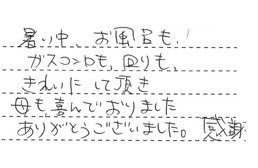 暑い中、お風呂も、
ガスコンロも、回りも、
きれいにして頂き
母も喜んでおりました
ありがとうございました。感謝